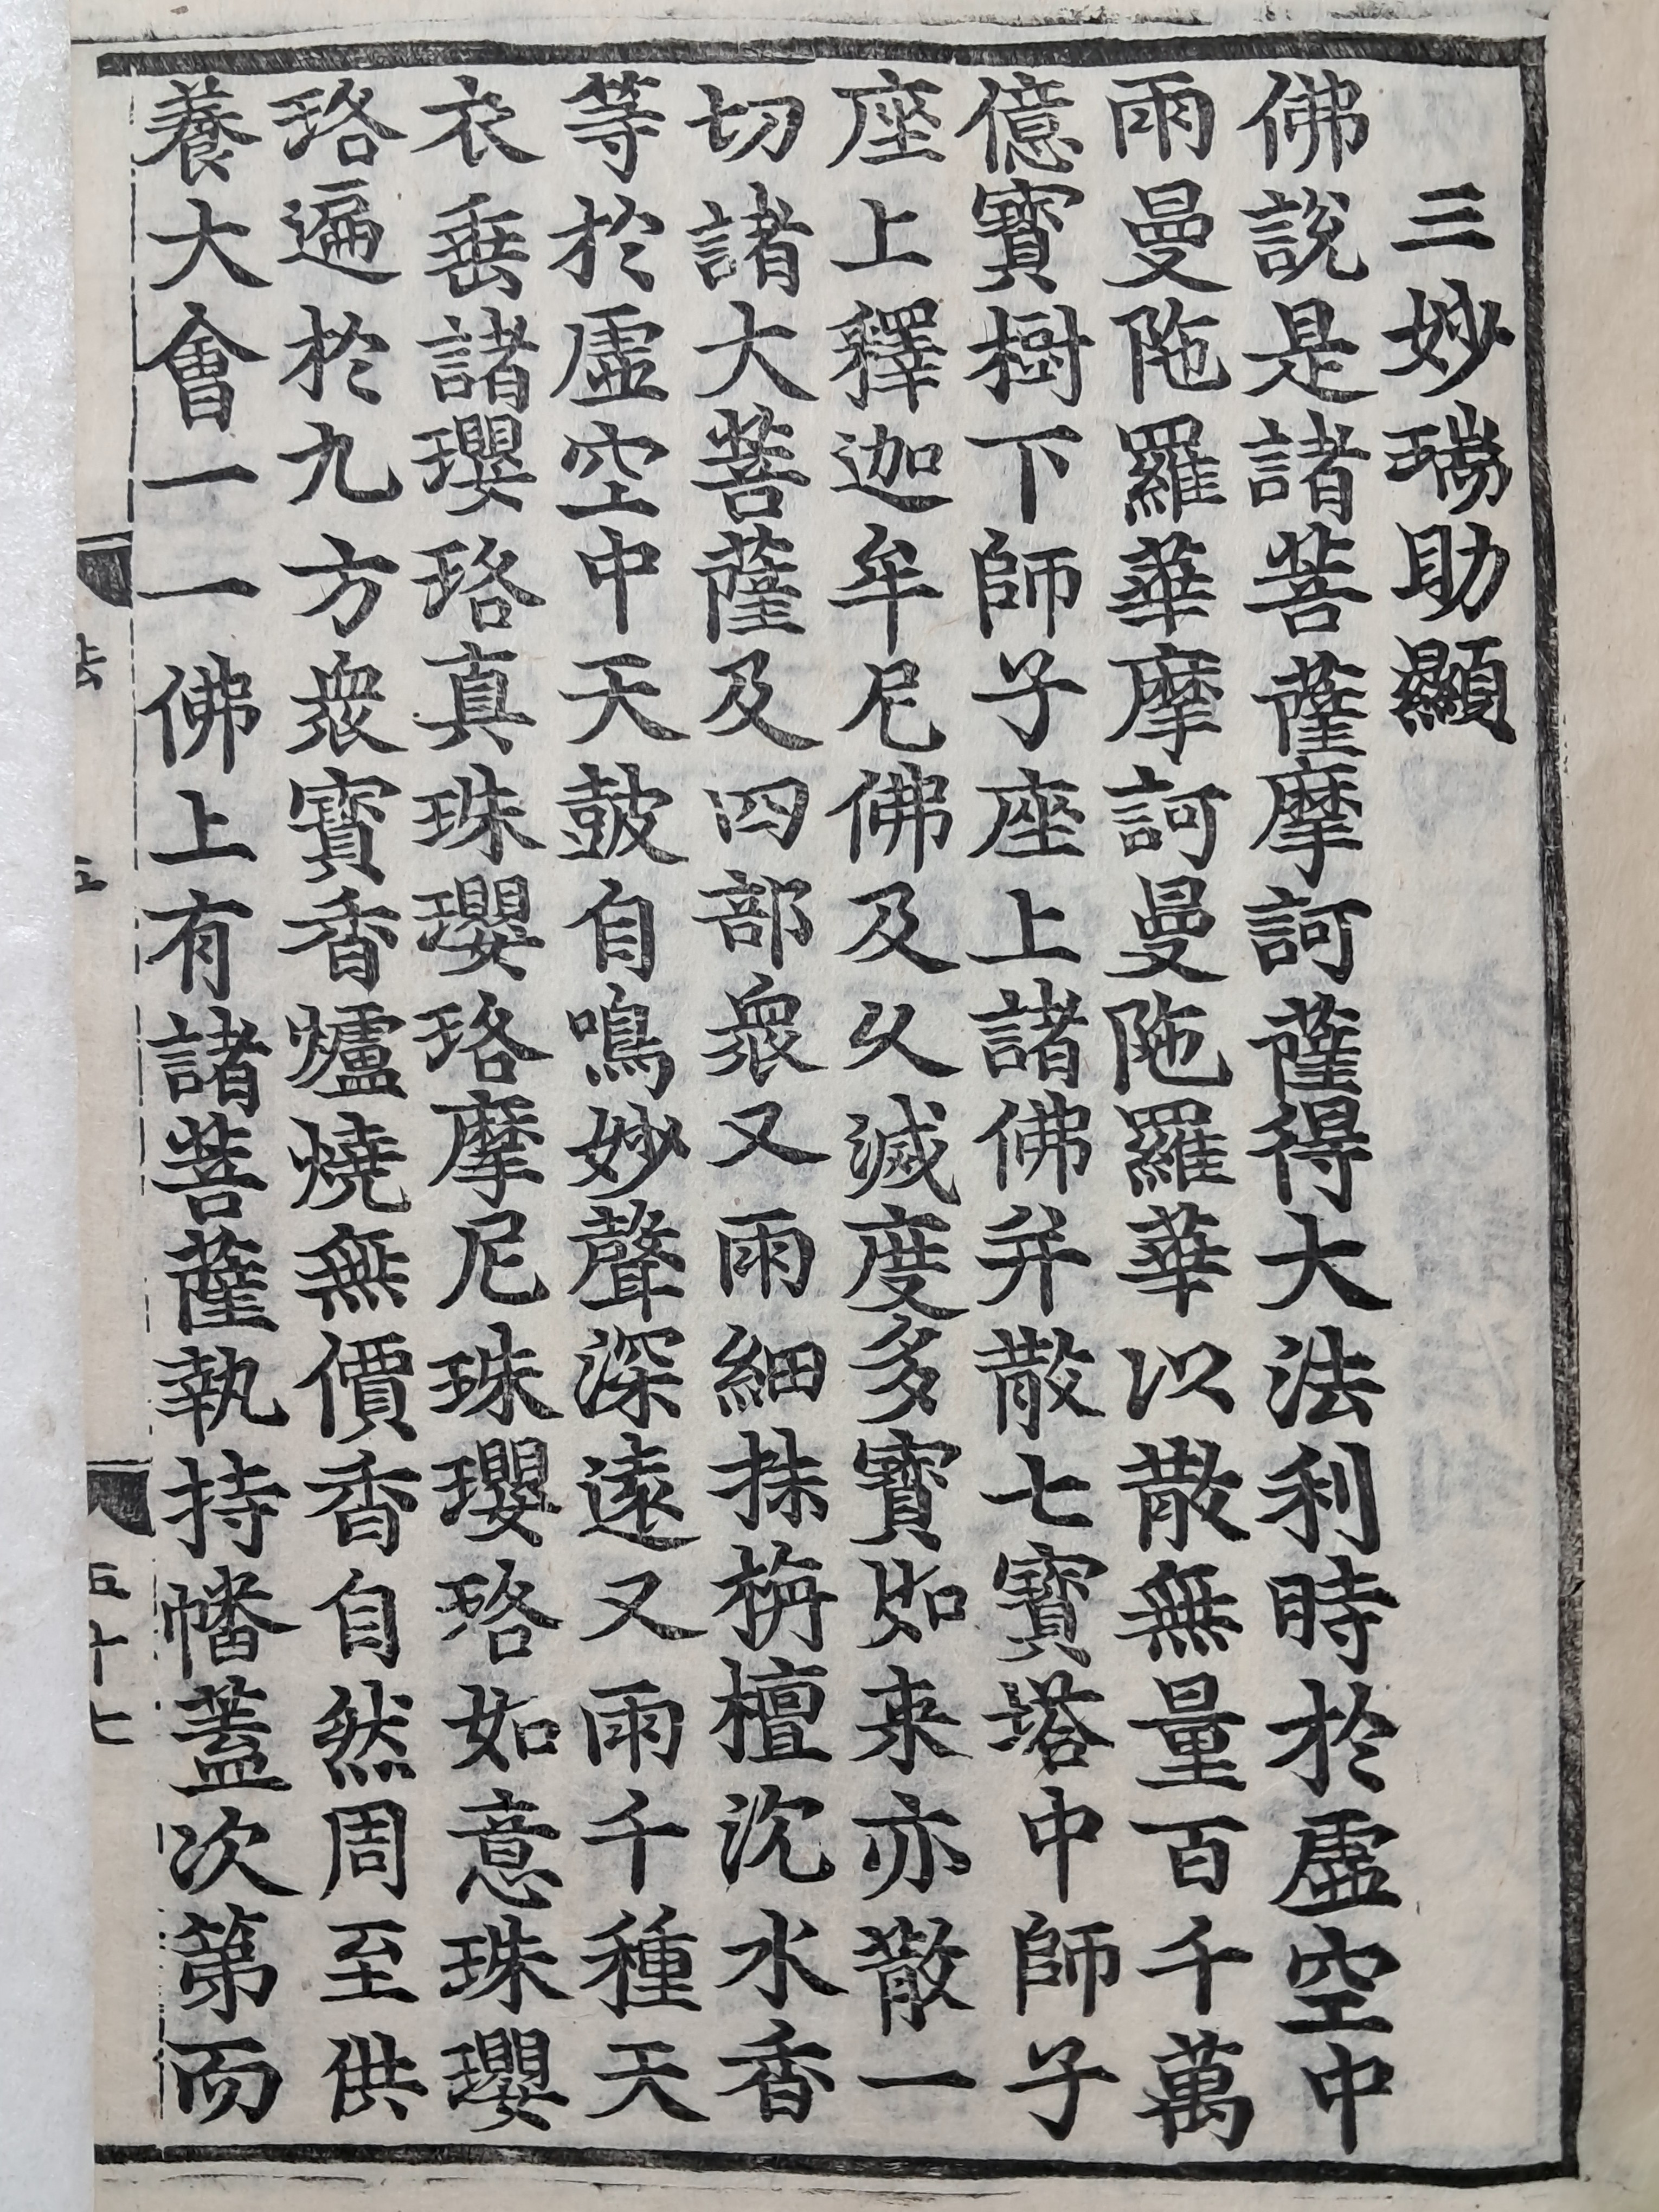 三妙瑞助顯
佛說是諸菩薩摩訶薩得大法利時於虛空中
雨曼陁羅華摩訶曼陁羅華以散無量百千萬
億寶樹下師子座上諸佛并散七寶塔中師子
座上釋迦牟尼佛及久滅度多寶如来亦散一
切諸大菩薩及四部衆又雨細抹栴檀沉水香
等於虛空中天鼓自鳴妙聲深遠又雨千種天
衣垂諸瓔珞真珠瓔珞摩尼珠瓔珞如意珠瓔
珞遍於九方衆寶香爐燒無價香自然周至供
養大會一一佛上有諸菩薩執持幡蓋次第而